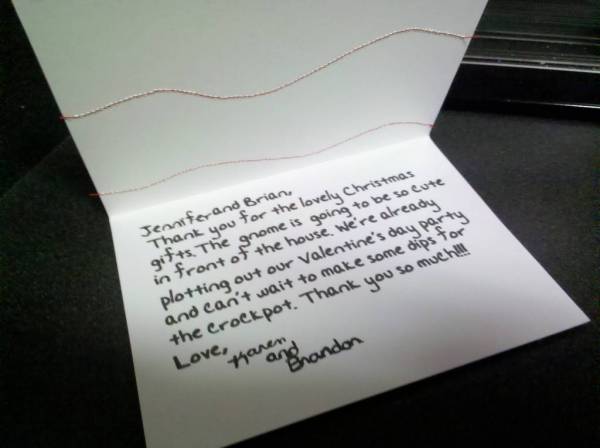 Jennifer and Brian,
Thank you for the lovely Christmas
gifts. The gnome is going to be so cute
in front of the house. We're already
plotting out our Valentine's day party
and can't wait to make some dips for
the Crockpot. Thank you so much!!!
Love,
Karen
and
Brandon